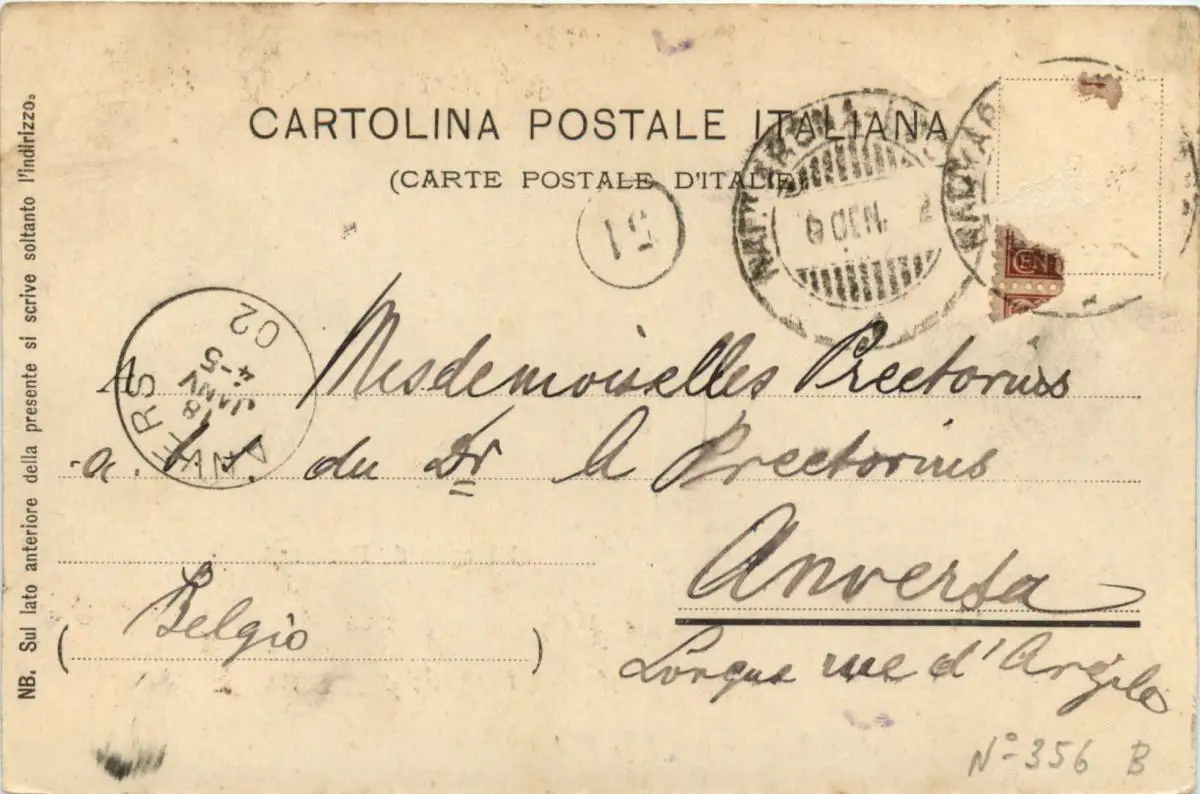 CARTOLINA POSTALE ITALIANA
(CARTE POSTALE D'ITALIE)
51
CEN
ANVERS
4-5
18
JANV
02
A Mesdemoiselles Prectorius
a. du Dr A Prectorius
Anversa
Belgio
( )
Longue rue d'Argile
N° 356 B
NB. Sul lato anteriore della presente si scrive soltanto l'indirizzo.